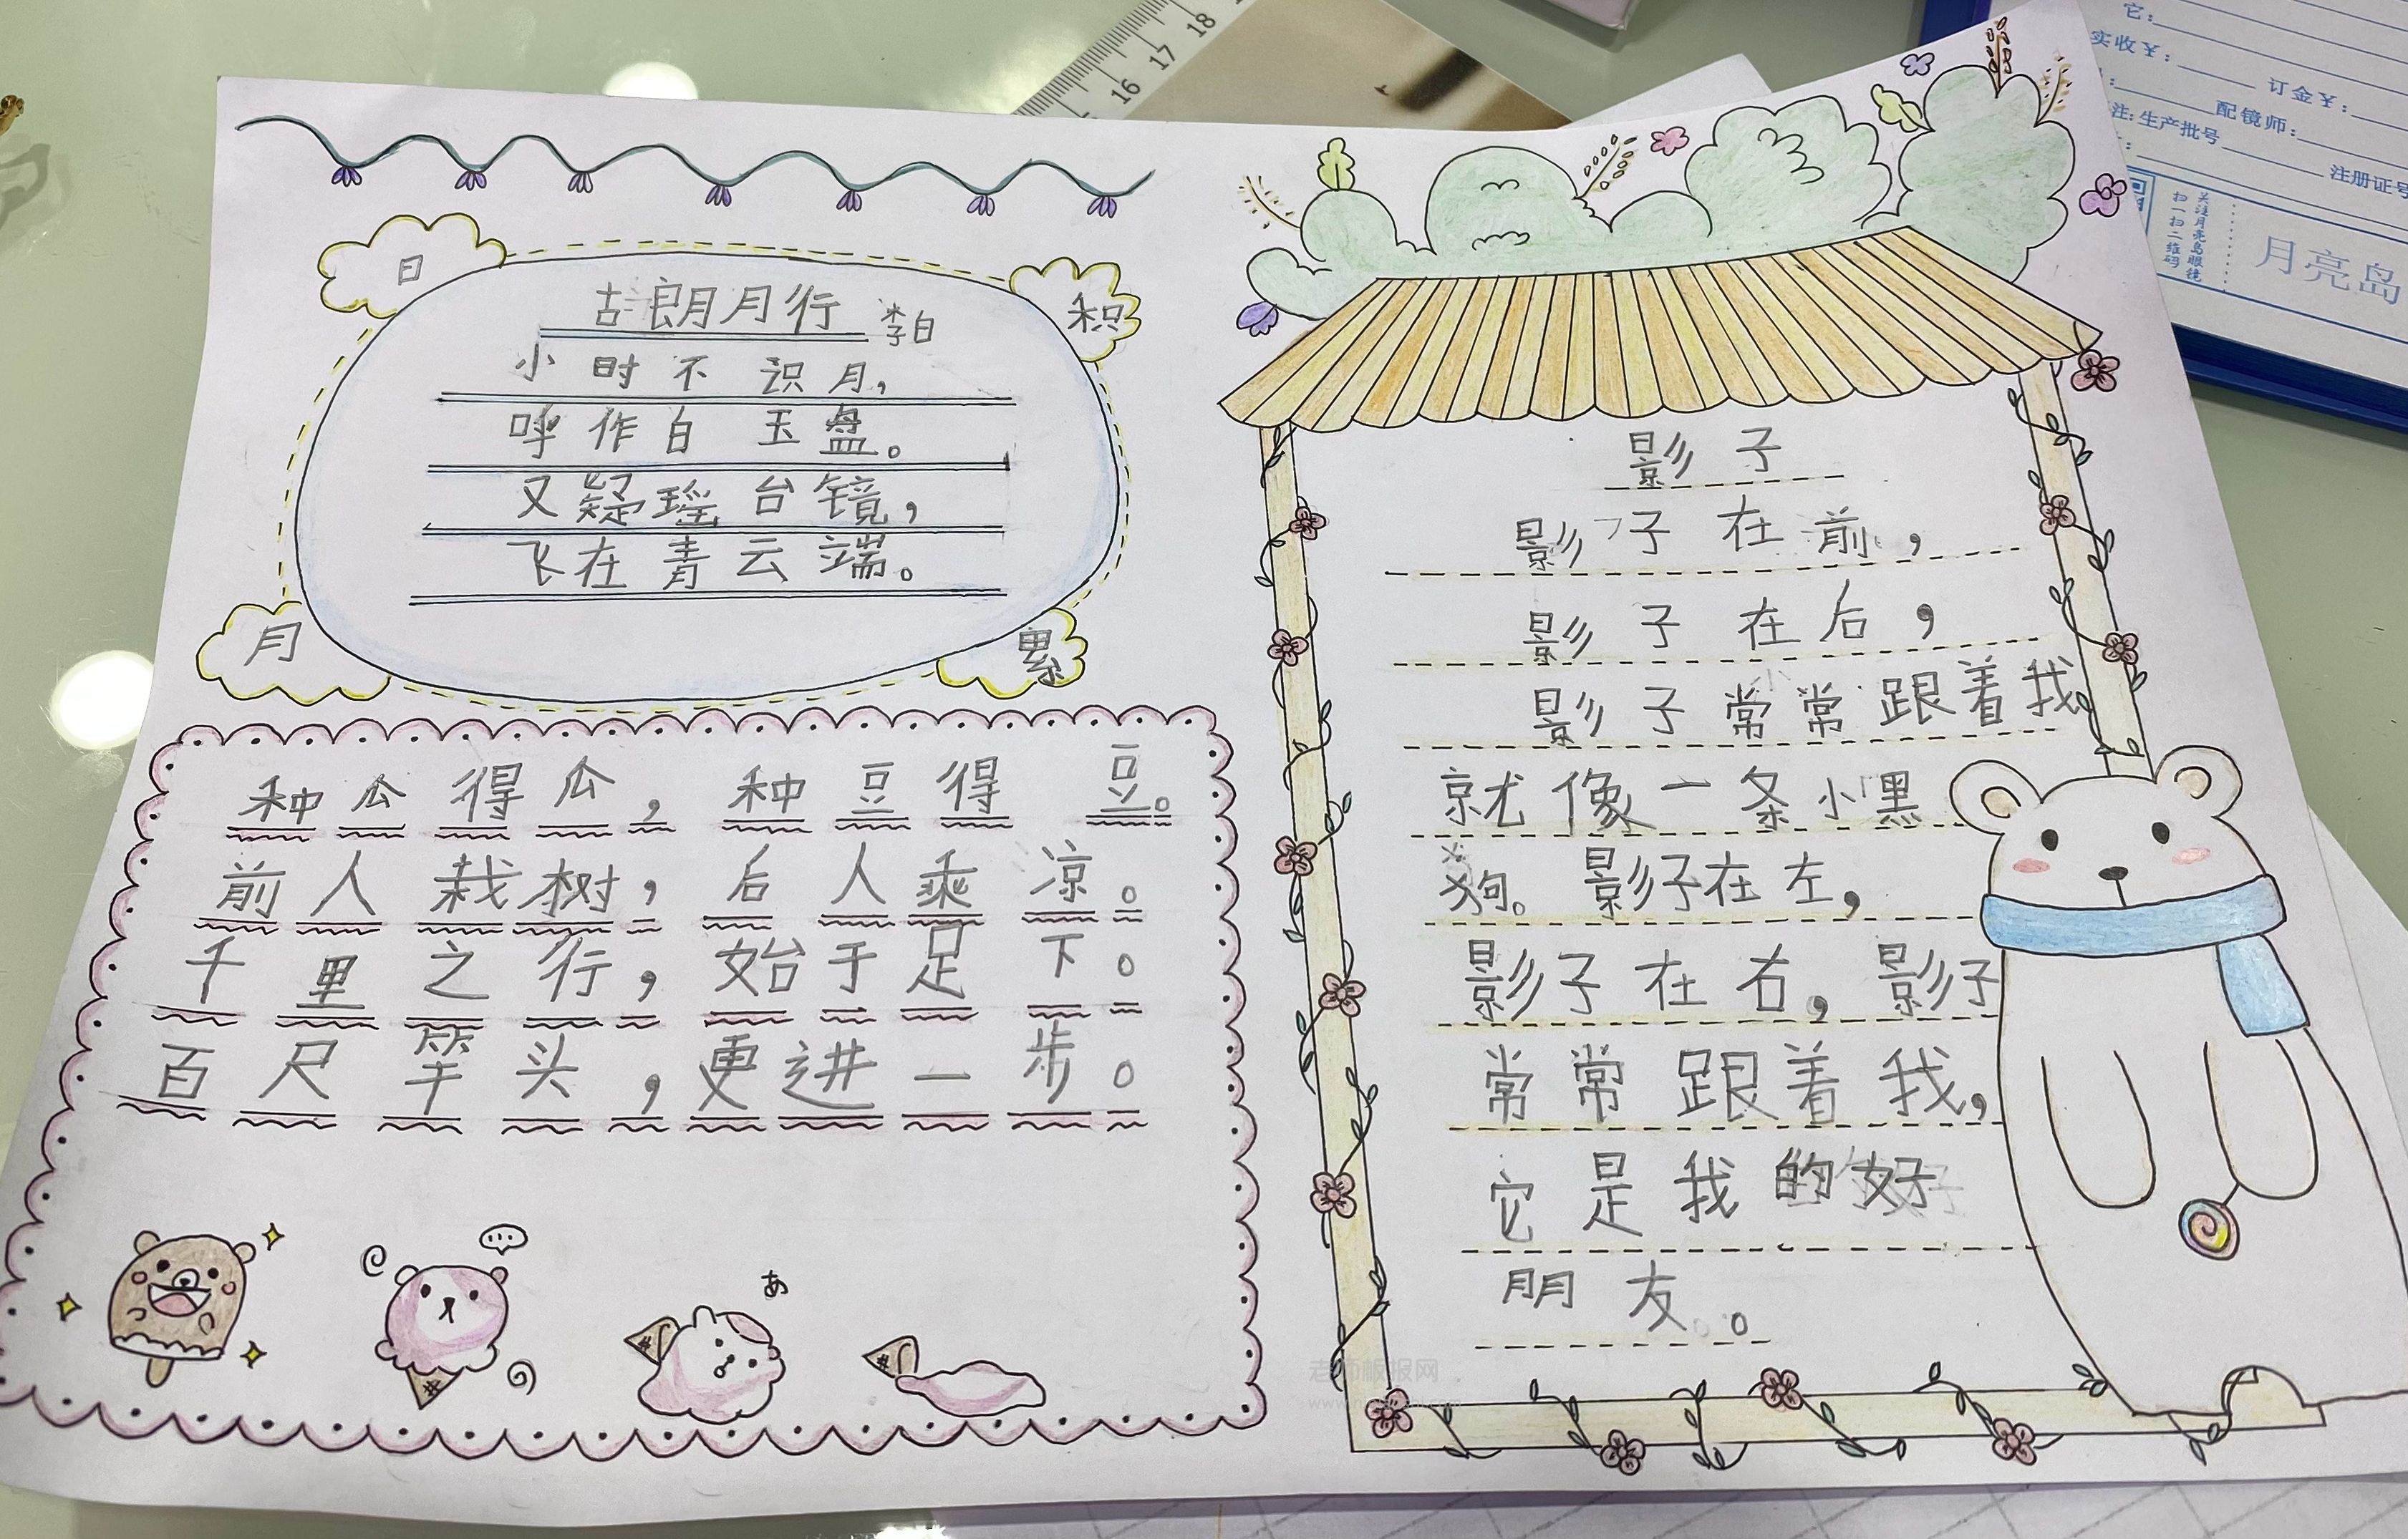 日
积
月
累
古朗月行 李白
小时不识月，
呼作白玉盘。
又疑瑶台镜，
飞在青云端。
种瓜得瓜，种豆得豆。
前人栽树，后人乘凉。
千里之行，始于足下。
百尺竿头，更进一步。
あ
影子
影子在前，
影子在后，
影子常常跟着我
就像一条小黑
狗。影子在左，
影子在右，影子
常常跟着我，
它是我的好
朋友。
老师板报网
16 17 18
它：
实收￥：
订金￥：
注：生产批号
配镜师：
注册证号
关注月亮岛眼镜
扫一扫二维码
月亮岛